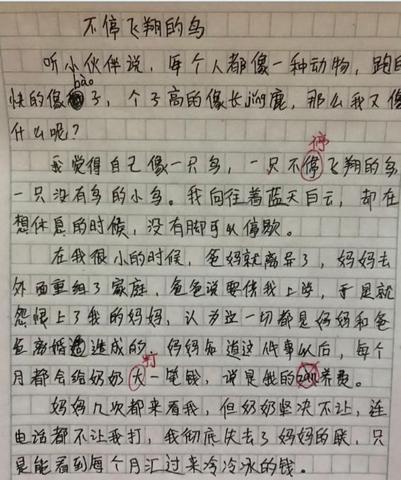 不停飞翔的鸟
听小伙伴说，每个人都像一种动物，跑
bào
快的像子，个子高的像长jǐng鹿，那么我又像
什么呢？
停
我觉得自己像一只鸟，一只不停飞翔的鸟
一只没有鸟的小鸟。我向往着蓝天白云，却在
想休息的时候，没有脚可以停歇。
在我很小的时候，爸妈就离异了，妈妈去
外面重组了家庭，爸爸说要供我上学，于是就
怨恨上了我的妈妈，认为这一切都是妈妈和爸
爸离婚造成的。妈妈知道这件事以后，每个
打
月都会给奶奶大一笔钱，说是我的养费。
妈妈几次都来看我，但奶奶坚决不让，连
电话都不让我打，我彻底失去了妈妈的联，只
是能看到每个月汇过来冷冷冰的钱。